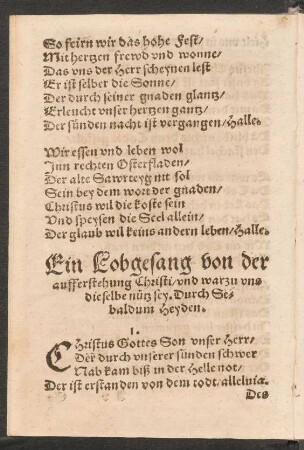 So feirn wir das hohe Fest/
Mit hertzen frewd vnd wonne/
Das vns der Herr scheynen lest
Er ist selber die Sonne/
Der durch seiner gnaden glantz/
Erleucht vnser hertzen gantz/
Der sünden nacht ist vergangen/Halle.
Wir essen vnd leben wol
Inn rechten Osterfladen/
Der alte Sawrteyg nit sol
Sein bey dem wort der gnaden/
Christus wil die koste sein
Vnd speysen die Seel allein/
Der glaub wil keins andern leben/Halle.
Ein Lobgesang von der
aufferstehung Christi/vnd warzu vns
dieselbe nütz sey. Durch Se-
baldum Heyden.
1.
CHristus Gottes Son vnser Herr/
Der durch vnserer sünden schwer
Nab kam biß in der Helle not/
Der ist erstanden von dem todt/alleluia.
Des